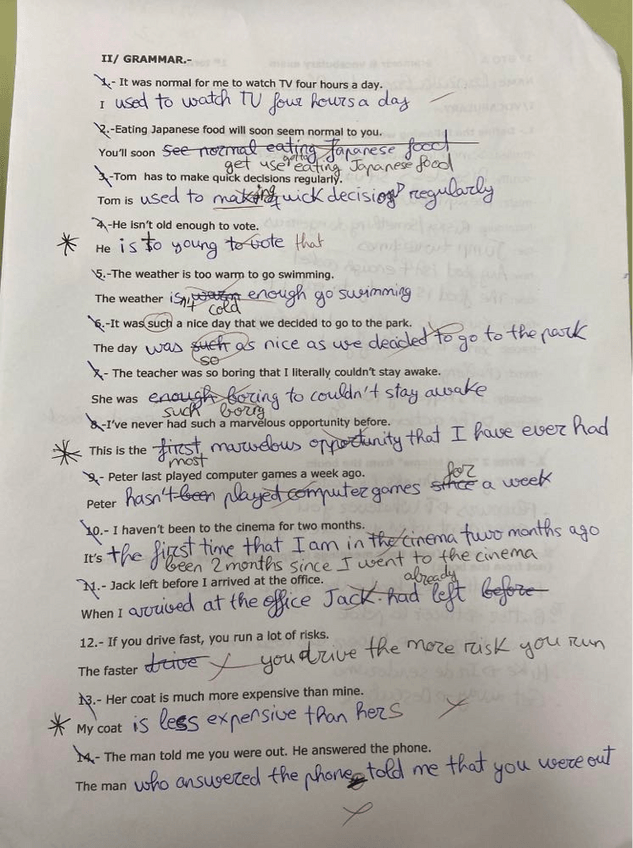 II/ GRAMMAR.-
1.- It was normal for me to watch TV four hours a day.
I used to watch TV four hours a day
2.-Eating Japanese food will soon seem normal to you.
You'll soon see normal eating Japanese food
get use getting eating Japanese food
3.-Tom has to make quick decisions regularly.
Tom is used to making quick decision regularly
4.-He isn't old enough to vote.
He is to young to vote that
5.-The weather is too warm to go swimming.
The weather isn't warm enough go swimming
cold
6.-It was such a nice day that we decided to go to the park.
The day was such as nice as we decided to go to the park
so
7.- The teacher was so boring that I literally couldn't stay awake.
She was enough boring to couldn't stay awake
such boring
8.-I've never had such a marvelous opportunity before.
This is the first marvelous opportunity that I have ever had
most
9.- Peter last played computer games a week ago.
for
Peter hasn't been played computer games since a week
10.- I haven't been to the cinema for two months.
It's the first time that I am in the cinema two months ago
been 2 months since I went to the cinema
11.- Jack left before I arrived at the office.
already
When I arrived at the office Jack had left before
12.- If you drive fast, you run a lot of risks.
The faster drive you drive the more risk you run
13.- Her coat is much more expensive than mine.
My coat is less expensive than hers
14.- The man told me you were out. He answered the phone.
The man who answered the phone told me that you were out